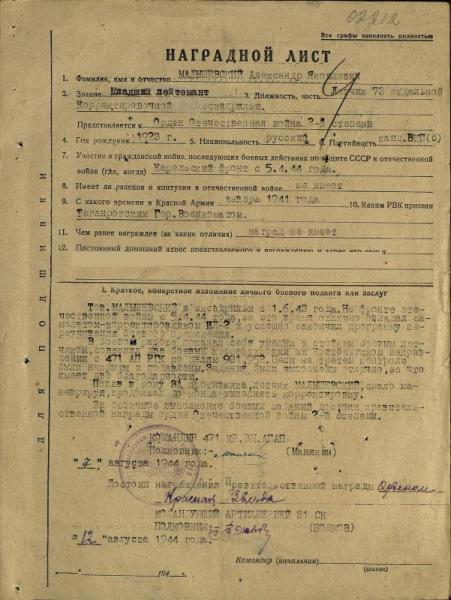 Все графы заполнять полностью
НАГРАДНОЙ ЛИСТ
1. Фамилия, имя и отчество МАЛЫШЕВСКИЙ Александр Яковлевич
2. Звание Младший лейтенант 3. Должность, часть Летчик 73 отдельной
Корректировочной
Представляется к Орден Отечественная война 2-й степени
4. Год рождения 1923 г. 5. Национальность русский 6. Партийность канд. ВКП(б)
7. Участие в гражданской войне, последующих боевых действиях по защите СССР и отечественной
войне (где, когда) Карельский фронт с 5.4.44 года.
8. Имеет ли ранения и контузии в отечественной войне не имеет
9. С какого времени в Красной Армии январь 1941 года 10. Каким РВК призван
Таганрогским Гор.Военкоматом.
11. Чем ранее награжден (за какие отличия) наград не имеет
12. Постоянный домашний адрес представляемого к награждению и адрес его семьи
ДЛЯ ПОДШИВКИ
I. Краткое, конкретное изложение личного боевого подвига или заслуг
Тов. МАЛЫШЕВСКИЙ в эскадрильи с 1.6.43 года. На фронте оте-
чественной войны с 5.4.44 года, за это время отлично овладел са-
молетом-корректировщиком ИЛ-2 и успешно закончил программу
В боевой работе показал себя умелым и стойким боевым лет-
имеет две благодарности.
Попав в зону ЗА противника, летчик МАЛЫШЕВСКИЙ, смело ма-
неврируя, продолжал до конца выполнять корректировку.
За отличное выполнение боевых заданий достоин правитель-
ственной награды орден Отечественной войны 2-й степени.
КОМАНДИР 471
Полковник: (Манякин)
"7" августа 1944 года.
Достоин награждения Правительственной награды Орденом
Красная Звезда
КОМАНДУЮЩИЙ АРТИЛЛЕРИЕЙ 31 СК
ПОЛКОВНИК:
"12" августа 1944 года.
Командир (начальник)
194 г.
(звание)